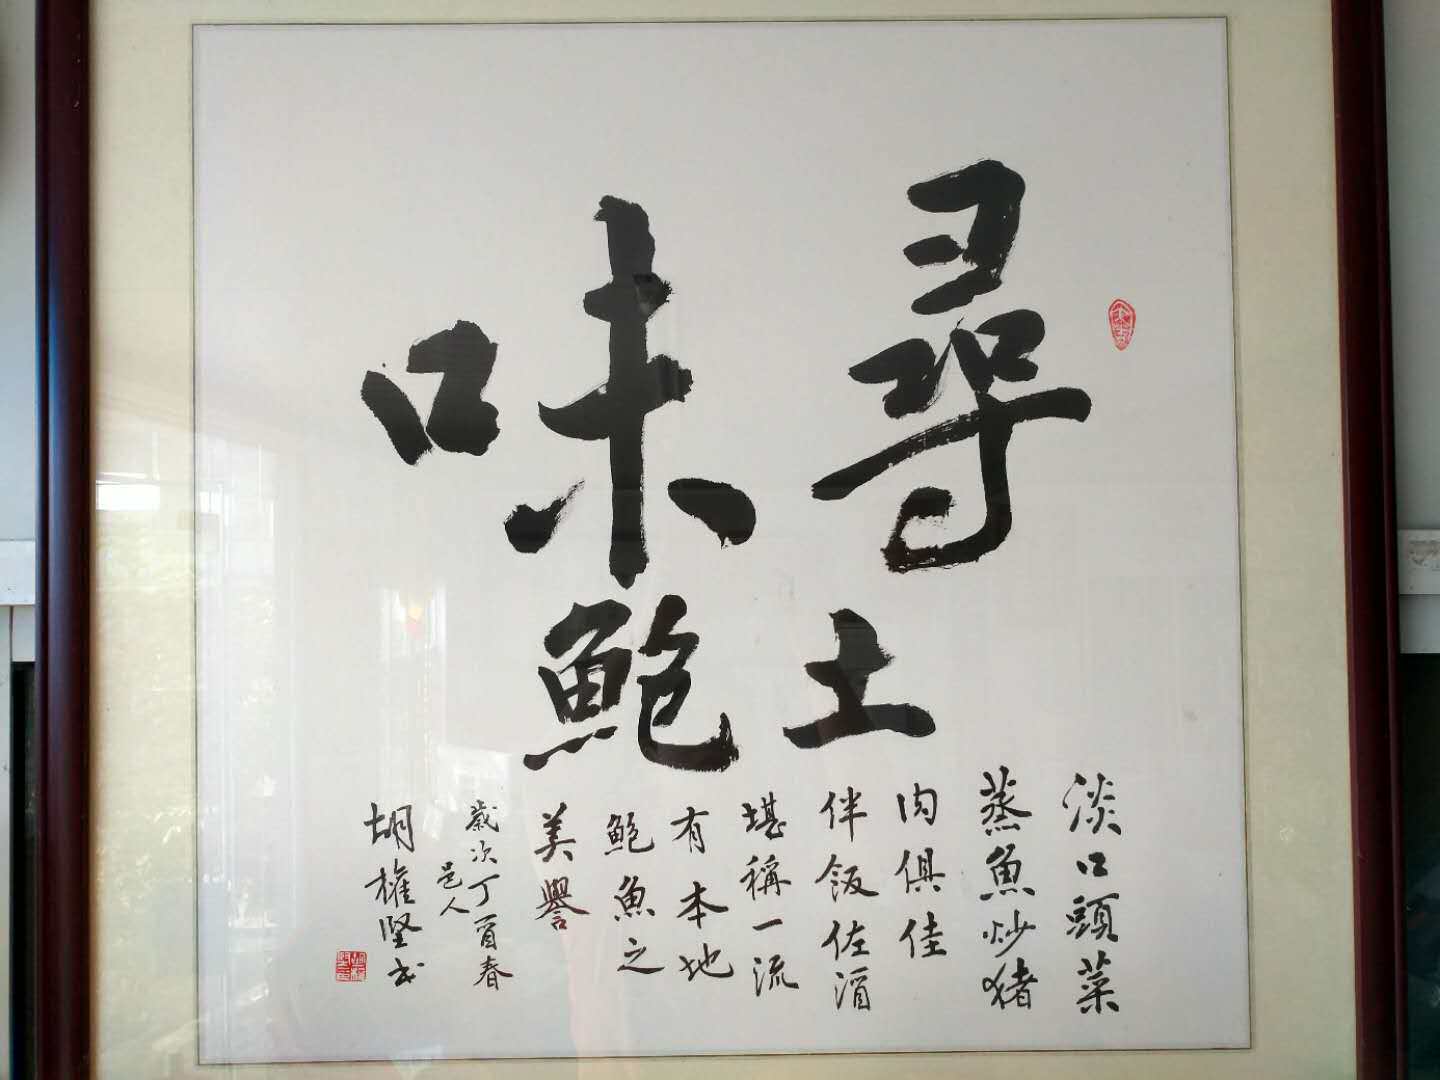 尋味
土鮑
淡口頭菜
蒸魚炒猪
肉俱佳
伴飯佐酒
堪稱一流
有本地
鮑魚之
美譽
歲次丁酉春
邑人
胡權堅书